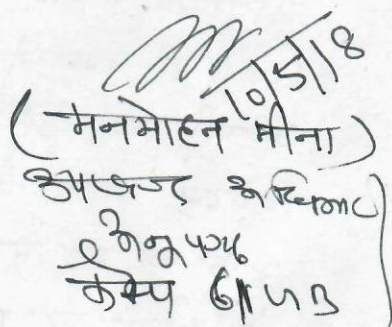 10/5/18
(मनमोहन मीना)
उपखण्ड अधिकारी
अनूपगढ़
कैम्प 61 GB